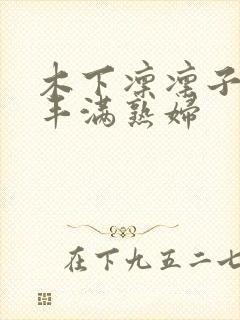 木下凛凛子
丰满熟妇
在下九五二七